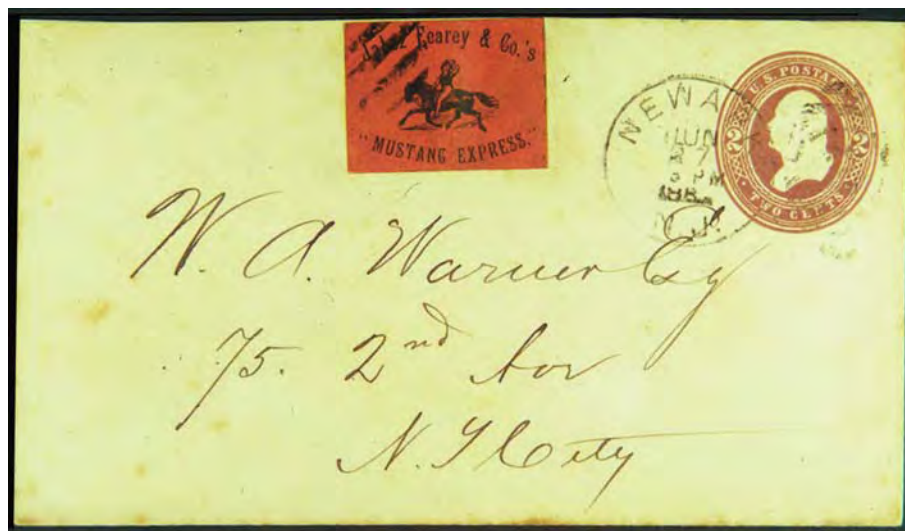 Jabez Fearey & Co.'s
"MUSTANG EXPRESS."
NEWA
JUN
27
3 PM
188
N.J.
U.S. POSTAGE
2 2
TWO CENTS
W. A. Warner Esq
75. 2nd Ave
N. Y City